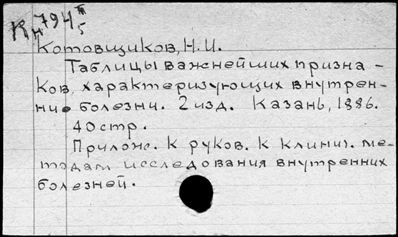 К 794 III
н 5
Котовщиков, Н.И.
Таблицы важнейших призна-
ков, характеризующих внутрен-
ние болезни. 2 изд. Казань, 1886.
40 стр.
Прилож. к руков. к клинич. ме-
тодам исследования внутренних
болезней.